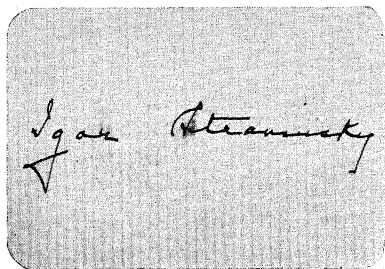 Igor Strawinsky